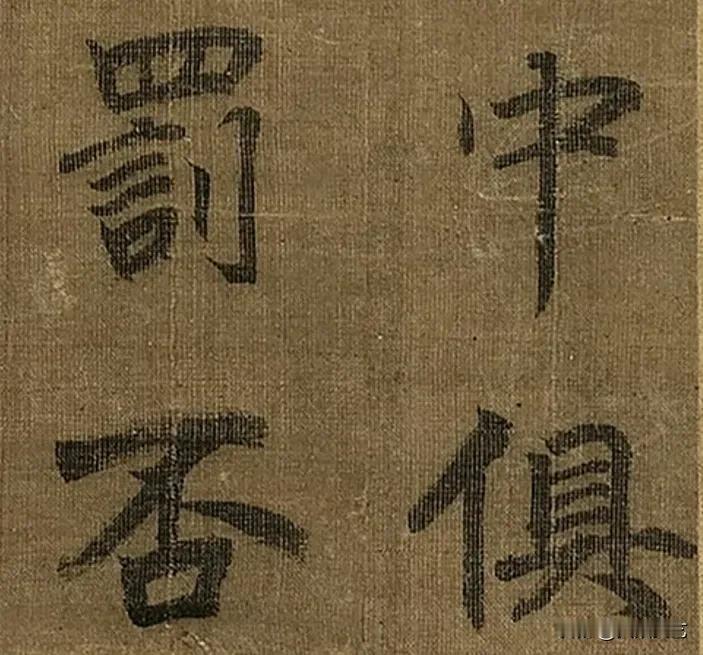 中俱
罰否